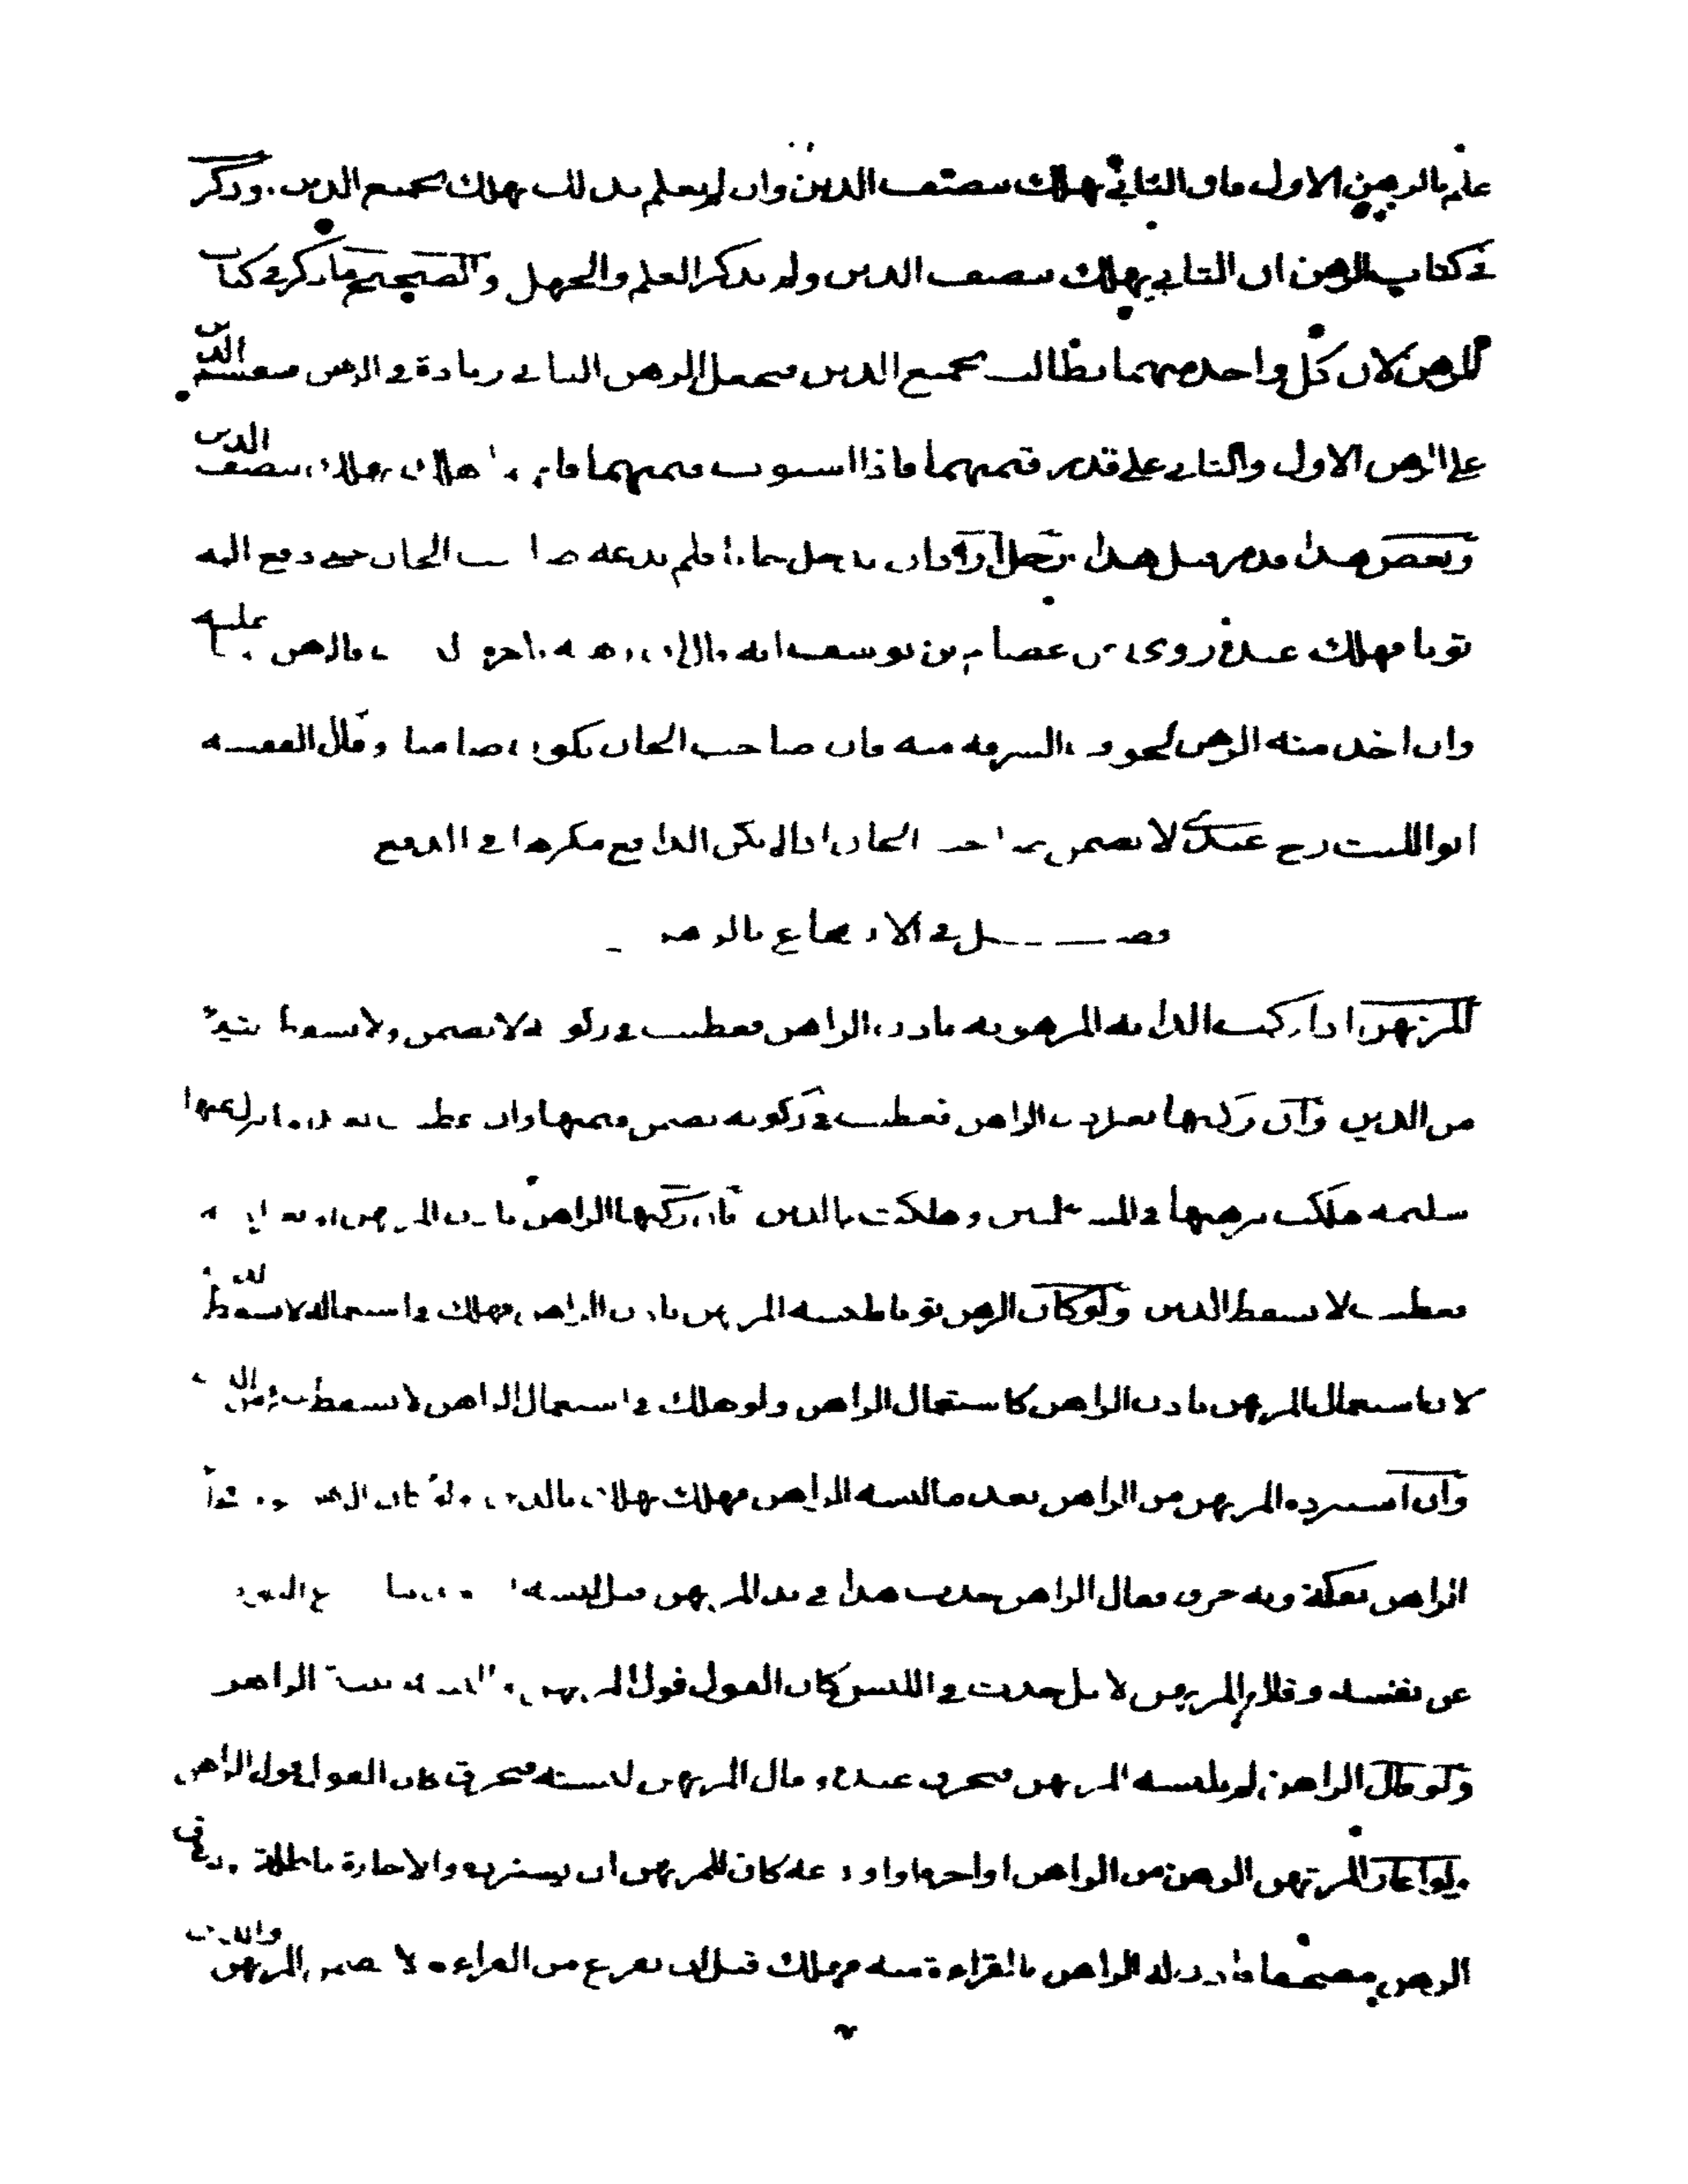 علم بالرهن الاول فان الثاني يهلك بنصف الدين وان لم يعلم بذلك يهلك بجميع الدين وذكر
في كتاب الرهن ان الثاني يهلك بنصف الدين ولم يذكر العلم والجهل والصحيح ما ذكر في كتاب
الرهن لان كل واحد منهما يطالب بجميع الدين فيجعل الرهن الثاني زيادة في الرهن فيقسم الدين
على الرهن الاول والثاني على قدر قيمتهما فاذا استوت قيمتهما هلك يهلك بنصف الدين
وبعض هذا قد مر قبل هذا رجل اراد ان يدخل خانا فلم يدعه صاحب الخان حتى دفع اليه
ثوبا فهلك عنده روى عن عصام بن يوسف انه قال فالرهن عليه
وان اخذ منه الرهن السرقة منه فان صاحب الخان يكون ضامنا وقال الفقيه
ابو الليث رح عندي لا يضمن صاحب الخان اذا لم يكن الدافع مكرها في الدفع
فصل في الانتفاع بالرهن
المرتهن اذا ركب الدابة المرهونة باذن الراهن فعطبت في ركوبه لا يضمن ولا يسقط شيء
من الدين وان ركبها بغير اذن الراهن فعطبت في ركوبه يضمن قيمتها وان عطبت بعد ما نزل عنها
سليمة هلكت برهنها في المسئلتين وهلكت بالدين فان ركبها الراهن باذن المرتهن
فعطبت لا يسقط الدين ولو كان الرهن ثوبا فلبسه المرتهن باذن الراهن فهلك في استعماله لا يسقط الدين
لان استعمال المرتهن باذن الراهن كاستعمال الراهن ولو هلك في استعمال الراهن لا يسقط الدين
وان استرده المرتهن من الراهن بعد ما البسه الراهن فهلك يهلك بالدين
الراهن يفكه وبه خرق فقال الراهن حدث هذا في يد المرتهن قبل اللبس
عن نفسه وقال المرتهن لا بل حدث في اللبس كان القول قول المرتهن الراهن
ولو قال الراهن لم يلبسه المرتهن فتخرق عنده وقال المرتهن لبسته فتخرق كان القول قول الراهن
ولو اعار المرتهن الرهن من الراهن او اجره او اودعه كان للمرتهن ان يسترده والاجارة باطلة
الرهن مصحفا فاذن له الراهن بالقراءة منه فهلك قبل ان يفرغ من القراءة لا يضمن المرتهن